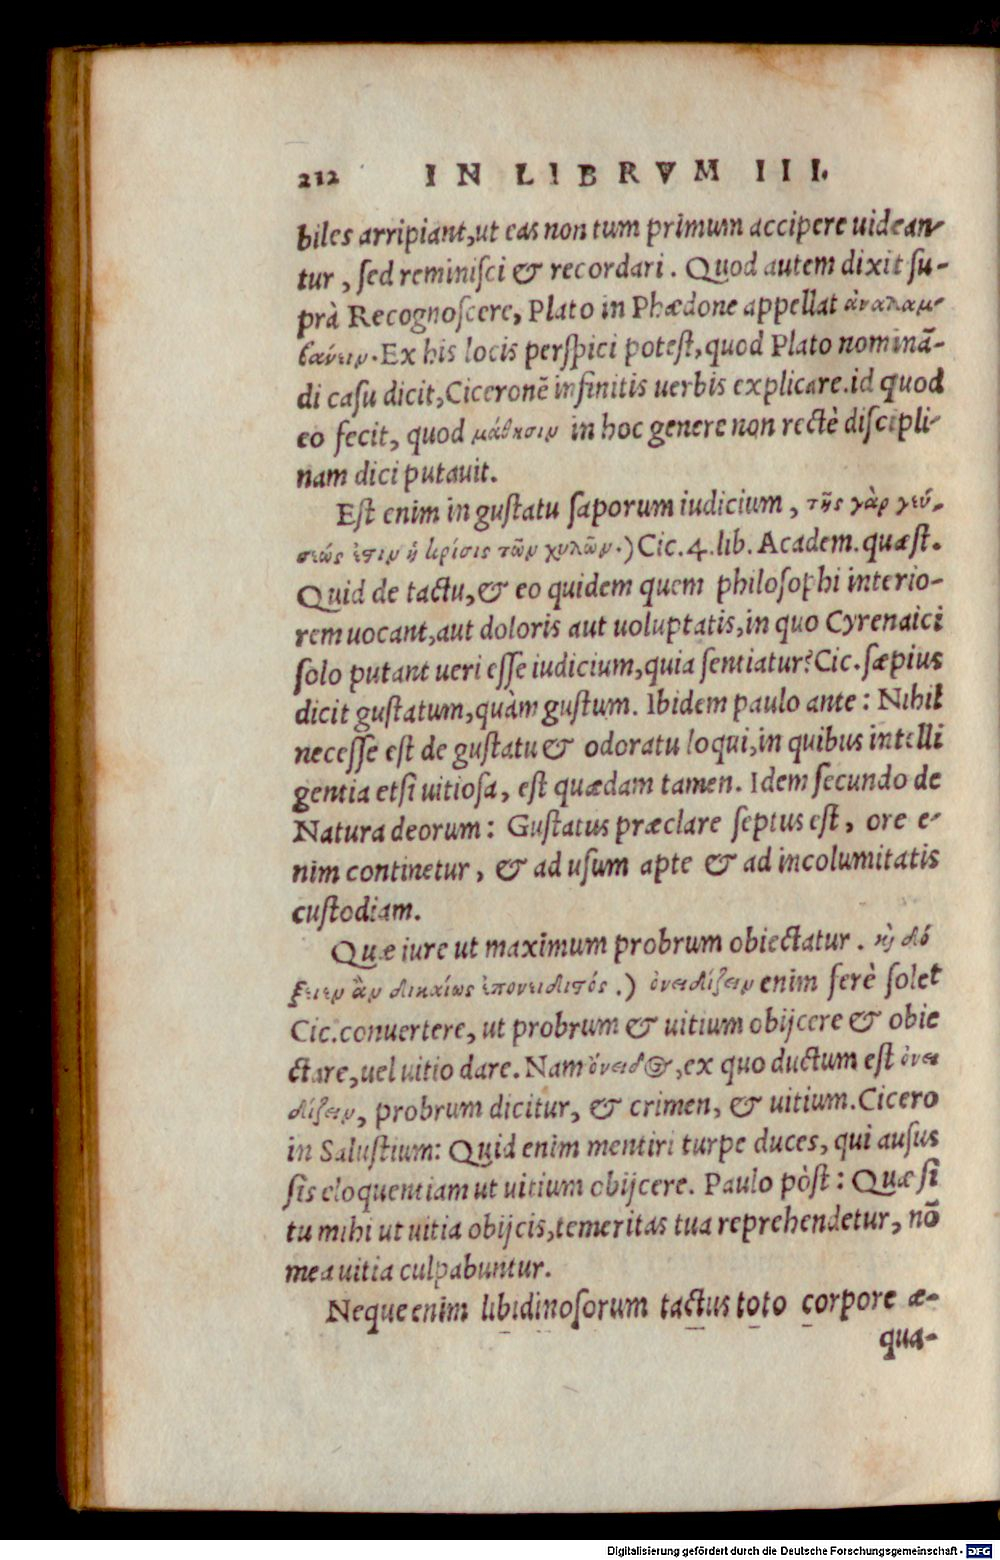 212 IN LIBRVM III.
biles arripiant, ut eas non tum primum accipere uidean-
tur, ſed reminiſci & recordari. Quod autem dixit ſu-
prà Recognoſcere, Plato in Phædone appellat ἀναλαμ-
βάνειν. Ex his locis perſpici poteſt, quod Plato nominā-
di caſu dicit, Ciceronē infinitis uerbis explicare. id quod
eo fecit, quod μάθησιν in hoc genere non rectè diſcipli-
nam dici putauit.
Eſt enim in guſtatu ſaporum iudicium, τῆς γὰρ γεύ-
σεώς ἐστιν ἡ κρίσις τῶν χυλῶν.) Cic. 4. lib. Academ. quæſt.
Quid de tactu, & eo quidem quem philoſophi interio-
rem uocant, aut doloris aut uoluptatis, in quo Cyrenaici
ſolo putant ueri eſſe iudicium, quia ſentiatur? Cic. ſæpius
dicit guſtatum, quàm guſtum. Ibidem paulo ante: Nihil
neceſſe eſt de guſtatu & odoratu loqui, in quibus intelli
gentia etſi uitioſa, eſt quædam tamen. Idem ſecundo de
Natura deorum: Guſtatus præclare ſeptus eſt, ore e-
nim continetur, & ad uſum apte & ad incolumitatis
cuſtodiam.
Quæ iure ut maximum probrum obiectatur. ἢ δό
ξειεν ἂν δικαίως ἐπονειδιστός.) ὀνειδίζειν enim ferè ſolet
Cic. conuertere, ut probrum & uitium obijcere & obie
ctare, uel uitio dare. Nam ὄνειδος, ex quo ductum eſt ὀνει
δίζειν, probrum dicitur, & crimen, & uitium. Cicero
in Saluſtium: Quid enim mentiri turpe duces, qui auſus
ſis eloquentiam ut uitium obijcere. Paulo pòſt: Quæ ſi
tu mihi ut uitia obijcis, temeritas tua reprehendetur, nō
mea uitia culpabuntur.
Neque enim libidinoſorum tactus toto corpore æ-
qua-
Digitalisierung gefördert durch die Deutsche Forschungsgemeinschaft - DFG